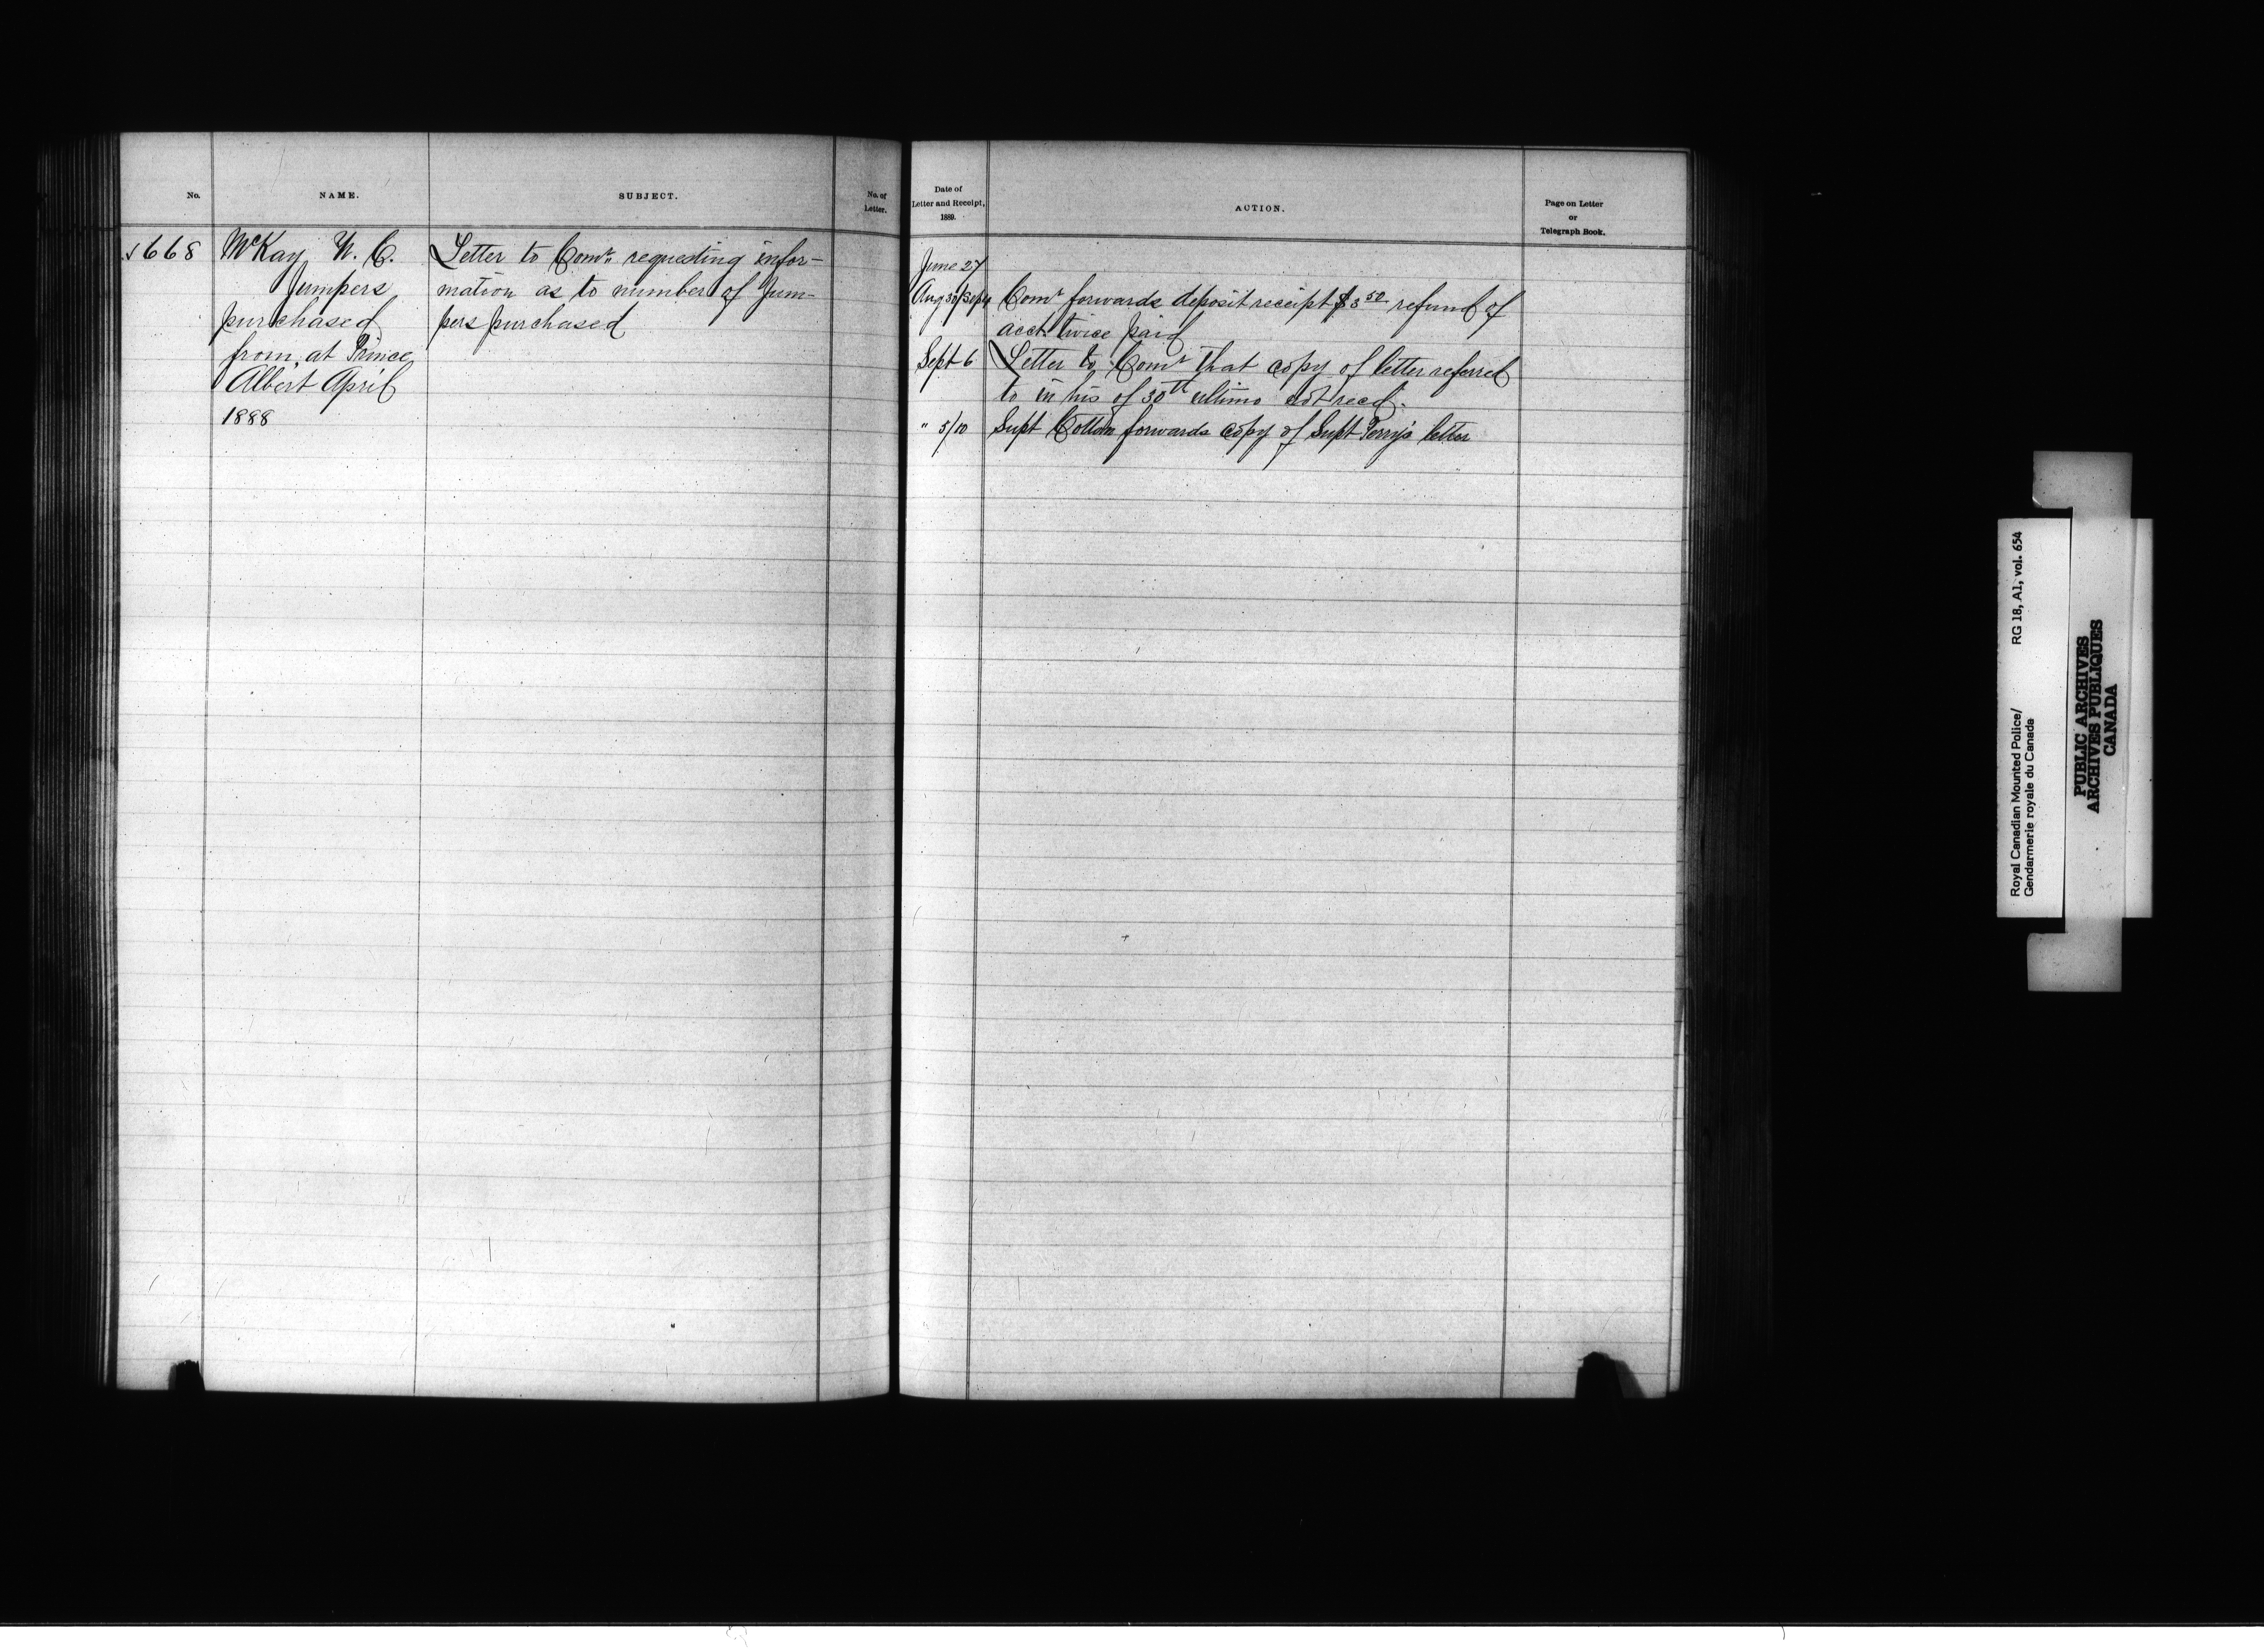 No.
NAME.
SUBJECT.
No. of
Letter.
668
McKay W. C.
Jumpers
purchased
from, at Prince
Albert April
1888
Letter to Comr. requesting infor-
mation as to number of Jum-
pers purchased
Date of
Letter and Receipt,
1889.
ACTION.
Page on Letter
or
Telegraph Book.
June 27
Aug 30/Sept 4 Comr forwards deposit receipt $3 50 refund of
acct. twice paid
Sept 6 Letter to Comr that copy of letter referred
to in his of 30th ultimo not recd.
" 5/10 Supt Cotton forwards copy of Supt Perry's letter
Royal Canadian Mounted Police/
Gendarmerie royale du Canada
RG 18, A1, vol. 654
PUBLIC ARCHIVES
ARCHIVES PUBLIQUES
CANADA